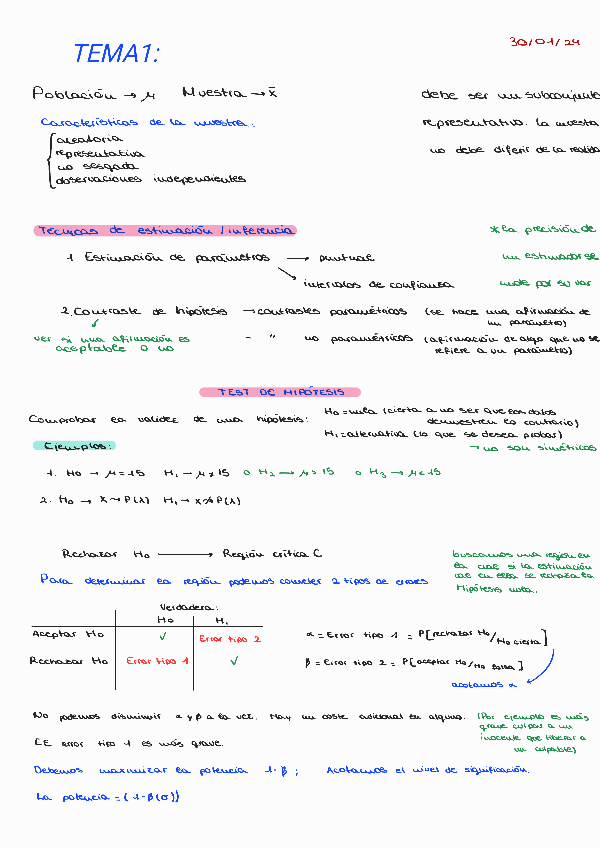 30/01/24
TEMA1:
Población → μ   Muestra → x̄
debe ser un subconjunto
Características de la muestra:
representativo. La muestra
aleatoria
representativa
no debe diferir de la realidad
no sesgada
observaciones independientes
Técnicas de estimación / inferencia
*La precisión de
1. Estimación de parámetros → puntual
un estimador se
→ intervalos de confianza
mide por su var
2. Contraste de hipótesis → contrastes paramétricos (se hace una afirmación de
un parámetro)
ver si una afirmación es
aceptable o no
- " no paramétricos (afirmación de algo que no se
refiere a un parámetro)
TEST DE HIPÓTESIS
Comprobar la validez de una hipótesis:
H0 = nula (cierta a no ser que los datos
demuestren lo contrario)
H1 = alternativa (lo que se desea probar)
→ no son simétricos
Ejemplos:
1. H0 → μ = 15   H1 → μ ≠ 15   o H2 → μ > 15   o H3 → μ < 15
2. H0 → X ~ P(λ)   H1 → X ≁ P(λ)
Rechazar H0 → Región crítica C
buscamos una región en
la cual si la estimación
cae en ella se rechaza la
Hipótesis nula..
Para determinar la región podemos cometer 2 tipos de errores
Verdadera:
H0   H1
Aceptar H0   ✓   Error tipo 2
Rechazar H0   Error tipo 1   ✓
α = Error tipo 1 = P[rechazar H0/H0 cierta]
β = Error tipo 2 = P[aceptar H0/H0 falsa]
acotamos α
No podemos disminuir α y β a la vez. Hay un coste adicional en alguno.
(Por ejemplo es más
grave culpar a un
inocente que liberar a
un culpable)
El error tipo 1 es más grave.
Debemos maximizar la potencia 1-β; Acotamos el nivel de significación.
La potencia = (1-β(σ))